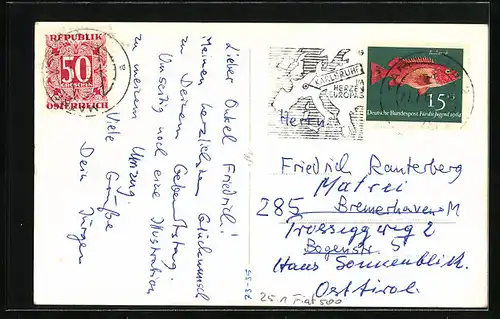 REPUBLIK
50
GROSCHEN
ÖSTERREICH
Lieber Onkel Friedrich!
Meinen herzlichen Glückwunsch
zu Deinem Geburtstag.
Umseitig noch eine Illustration
zu meinem Umzug.
Viele Grüße
Dein Jürgen
KARLSRUHE
HERZEN
EUROPAS
15+5
Deutsche Bundespost Für die Jugend 1964
Herrn
Friedrich Rauterberg
Matrei
285 Bremerhaven-M
Proseggweg 2
Bogenstr. 5
Haus Sonnenblick
Osttirol
25.1 Fiat 500